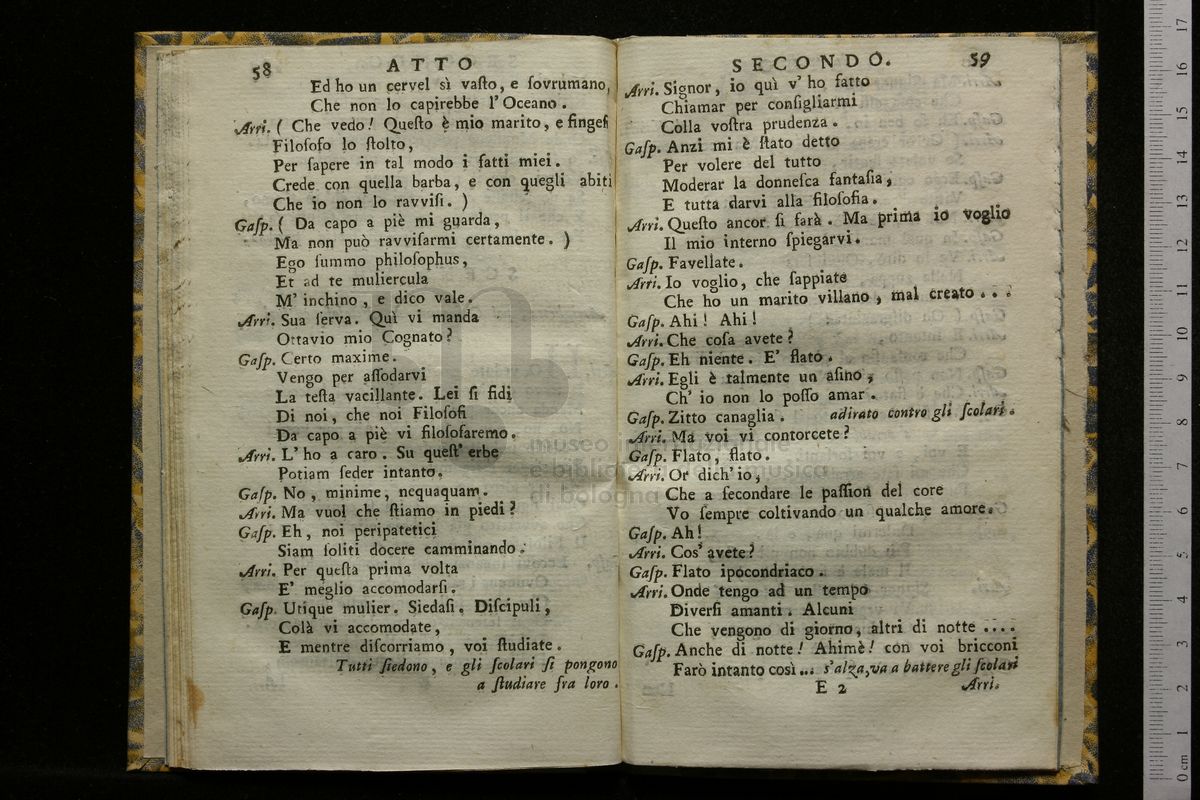 58 ATTO
Ed ho un cervel sì vaſto, e ſovrumano,
Che non lo capirebbe l'Oceano.
Arri. ( Che vedo! Queſto è mio marito, e fingeſi
Filoſofo lo ſtolto,
Per ſapere in tal modo i fatti miei.
Crede con quella barba, e con quegli abiti
Che io non lo ravviſi. )
Gaſp. ( Da capo a piè mi guarda,
Ma non può ravviſarmi certamente. )
Ego ſummo philoſophus,
Et ad te muliercula
M'inchino, e dico vale.
Arri. Sua ſerva. Quì vi manda
Ottavio mio Cognato?
Gaſp. Certo maxime.
Vengo per aſſodarvi
La teſta vacillante. Lei ſi fidi
Di noi, che noi Filoſofi
Da capo a piè vi filoſofaremo.
Arri. L'ho a caro. Su queſt'erbe
Potiam ſeder intanto.
Gaſp. No, minime, nequaquam.
Arri. Ma vuol che ſtiamo in piedi?
Gaſp. Eh, noi peripatetici
Siam ſoliti docere camminando.
Arri. Per queſta prima volta
E' meglio accomodarſi.
Gaſp. Utique mulier. Siedaſi. Diſcipuli,
Colà vi accomodate,
E mentre diſcorriamo, voi ſtudiate.
Tutti ſiedono, e gli ſcolari ſi pongono
a ſtudiare fra loro.
SECONDO. 59
Arri. Signor, io quì v'ho fatto
Chiamar per conſigliarmi
Colla voſtra prudenza.
Gaſp. Anzi mi è ſtato detto
Per volere del tutto
Moderar la donneſca fantaſia,
E tutta darvi alla filoſofia.
Arri. Queſto ancor ſi farà. Ma prima io voglio
Il mio interno ſpiegarvi.
Gaſp. Favellate.
Arri. Io voglio, che ſappiate
Che ho un marito villano, mal creato...
Gaſp. Ahi! Ahi!
Arri. Che coſa avete?
Gaſp. Eh niente. E' flato.
Arri. Egli è talmente un aſino,
Ch'io non lo poſſo amar.
Gaſp. Zitto canaglia. adirato contro gli ſcolari.
Arri. Ma voi vi contorcete?
Gaſp. Flato, flato.
Arri. Or dich'io,
Che a ſecondare le paſſion del core
Vo ſempre coltivando un qualche amore.
Gaſp. Ah!
Arri. Cos'avete?
Gaſp. Flato ipocondriaco.
Arri. Onde tengo ad un tempo
Diverſi amanti. Alcuni
Che vengono di giorno, altri di notte ....
Gaſp. Anche di notte! Ahimè! con voi bricconi
Farò intanto così... s'alza, va a battere gli ſcolari
E 2 Arri.